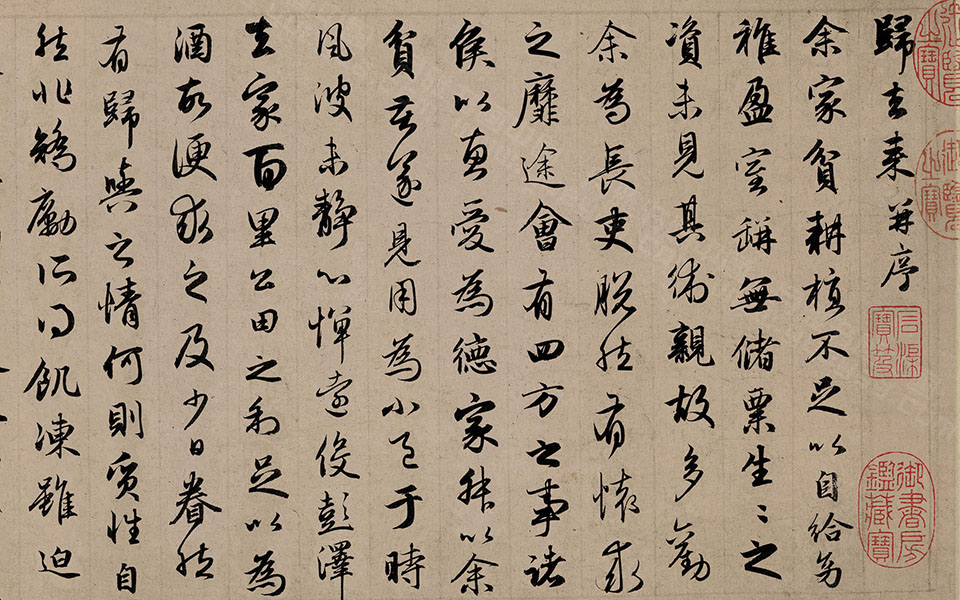 歸去来并序
余家貧耕植不足以自給幼
稚盈室缾無儲粟生〻之
資未見其術親故多勸
余為長吏脱然有懷求
之靡途會有四方之事諸
侯以惠愛為德家叔以余
貧苦遂見用為小邑于時
風波未靜心憚遠役彭澤
去家百里公田之利足以為
酒故便求之及少日眷然
有歸與之情何則質性自
然非矯勵所得飢凍雖迫
石渠寶笈
御書房鑑藏寶